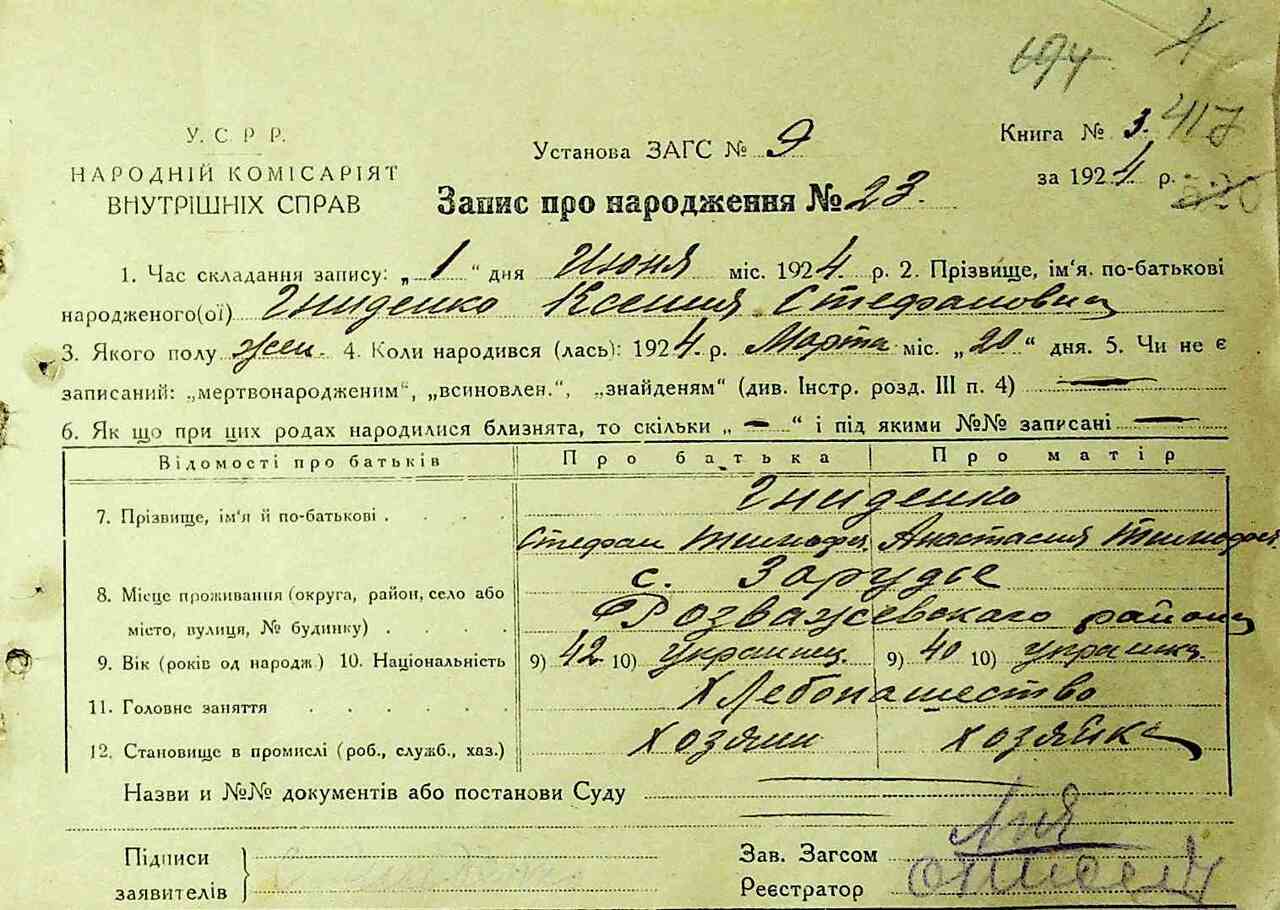 694 4
У. С. Р. Р.
НАРОДНІЙ КОМІСАРІЯТ
ВНУТРІШНІХ СПРАВ
Установа ЗАГС № 9
Книга № 3. 417
за 1924 р.
Запис про народження № 23.
1. Час складання запису: „ 1 “ дня Июня міс. 1924. р. 2. Прізвище, ім'я. по-батькові
народженого(ої) Гниденко Ксения Стефановна
3. Якого полу жен. 4. Коли народився (лась): 1924. р. Марта міс. „ 20 “ дня. 5. Чи не є
записаний: „мертвонародженим“, „всиновлен.“, „знайденям“ (див. Інстр. розд. III п. 4) —
6. Як що при цих родах народилися близнята, то скільки „ — “ і під якими №№ записані —
Відомості про батьків Про батька Про матір
7. Прізвище, ім'я й по-батькові . . . . Гниденко
Стефан Тимофе. Анастасия Тимофея
8. Місце проживання (округа, район, село або с. Зарудье
місто, вулиця, № будинку) . . . . Розважевского района
9. Вік (років од народж) 10. Національність 9) 42 10) Украинец. 9) 40 10) украинка.
11. Головне заняття . . . . . . Хлебопашество
12. Становище в промислі (роб., служб., хаз.) Хозяин хозяйка
Назви и №№ документів або постанови Суду
Підписи
заявителів
Зав. Загсом
Реєстратор